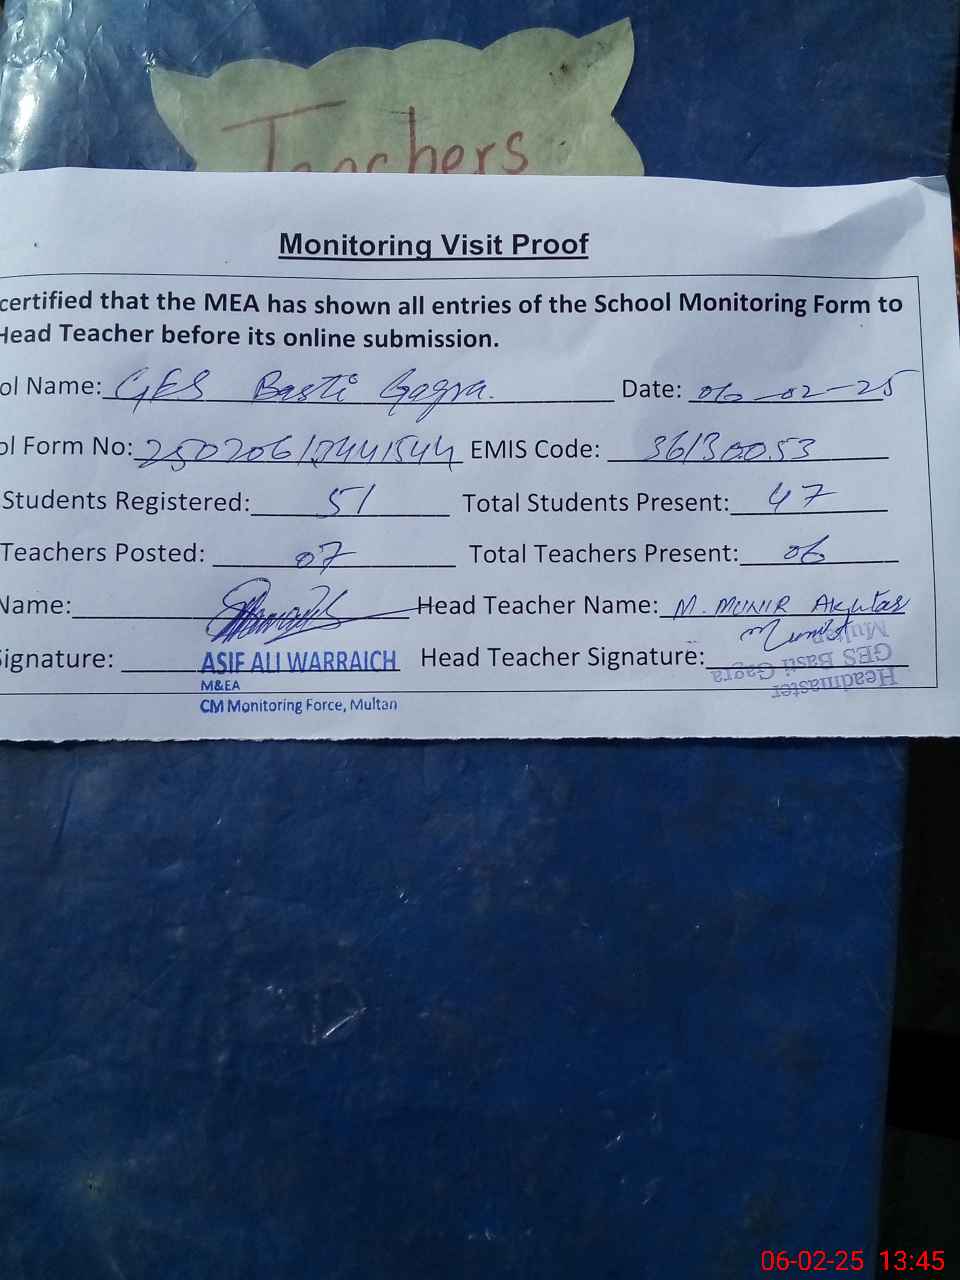 Teachers
Monitoring Visit Proof
certified that the MEA has shown all entries of the School Monitoring Form to
Head Teacher before its online submission.
ol Name: GES Basti Gagra. Date: 06-02-25
ol Form No: EMIS Code: 36130053
Students Registered: 51 Total Students Present: 47
Teachers Posted: 07 Total Teachers Present: 06
Name: Head Teacher Name: M. MUNIR Akhtar
ignature: ASIF ALI WARRAICH Head Teacher Signature:
M&EA
CM Monitoring Force, Multan
Headmaster
GES Basti Gagra
Multan
06-02-25 13:45